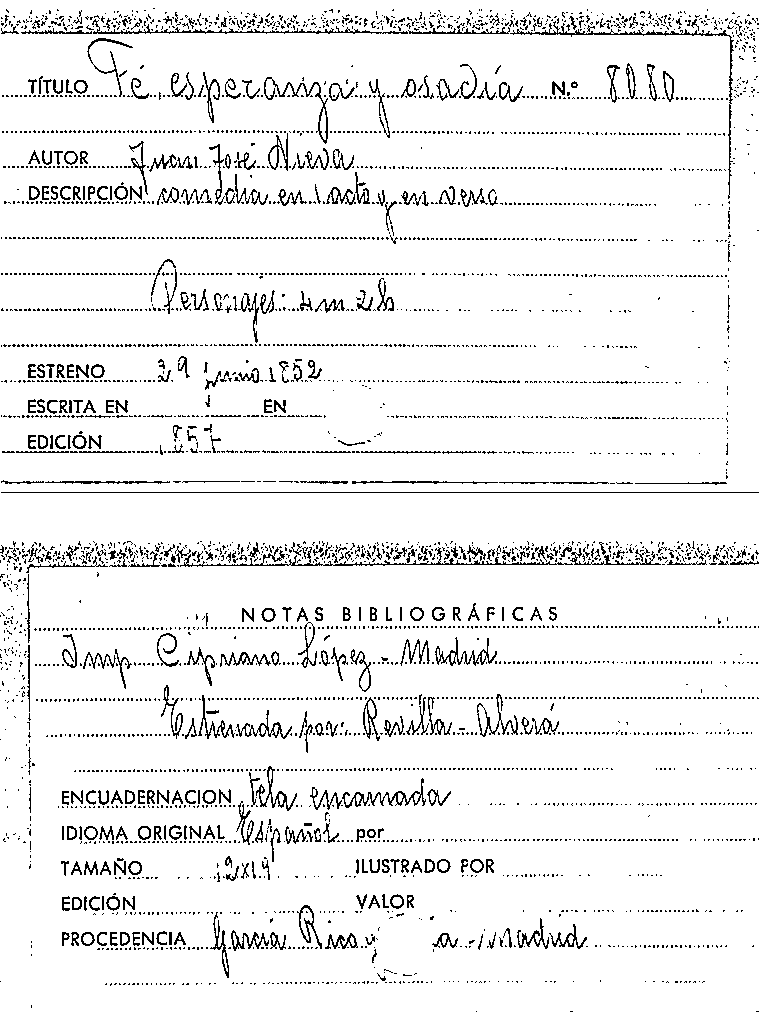 TÍTULO Fé, esperanza y osadía N.º 8080
AUTOR Juan José Nieva
DESCRIPCIÓN comedia en 1 acto y en verso
Personajes: 4m 2h
ESTRENO 29 junio 1852
ESCRITA EN EN
EDICIÓN 1857
NOTAS BIBLIOGRÁFICAS
Imp. Cipriano López - Madrid
Estrenada por: Revilla - Alverá
ENCUADERNACION tela encarnada
IDIOMA ORIGINAL Español por
TAMAÑO 12x19 ILUSTRADO POR
EDICIÓN VALOR
PROCEDENCIA García Rico y - Madrid